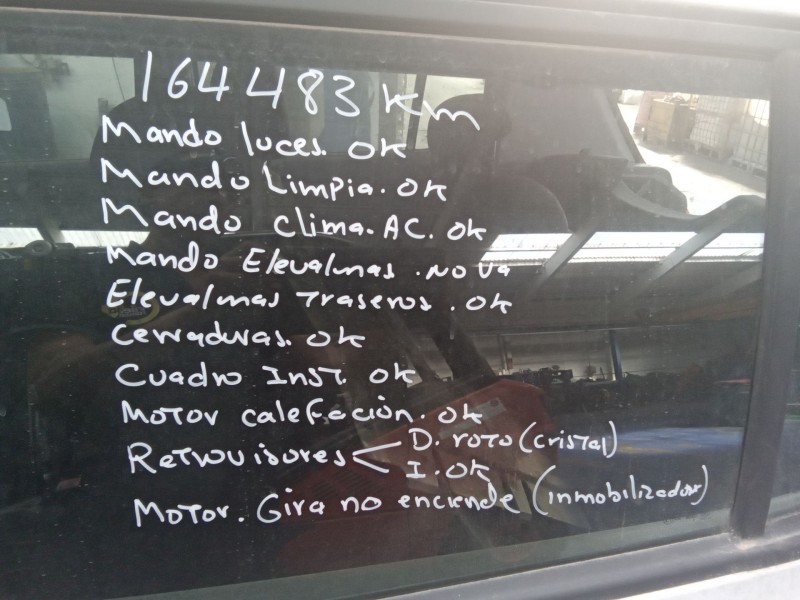 164483 Km
Mando luces. OK
Mando Limpia. OK
Mando clima. AC. OK
Mando Elevalunas. no va
Elevalunas Traseros. OK
Cerraduras. OK
Cuadro Inst. OK
Motor calefación. OK
Retrovisores < D. roto (cristal)
I. OK
Motor. Gira no enciende (inmobilizador)